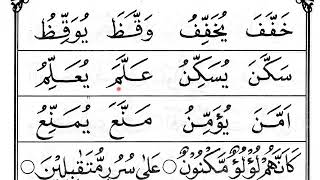 خَفَّفَ يُخَفِّفُ وَقَّظَ يُوَقِّظُ
سَكَّنَ يُسَكِّنُ عَلَّمَ يُعَلِّمُ
اَمَّنَ يُؤَمِّنُ مَنَّعَ يُمَنِّعُ
كَاَنَّهُمْ لُؤْلُؤٌ مَّكْنُوْنٌ ○ عَلٰى سُرُرٍ مُّتَقٰبِلِيْنَ ○